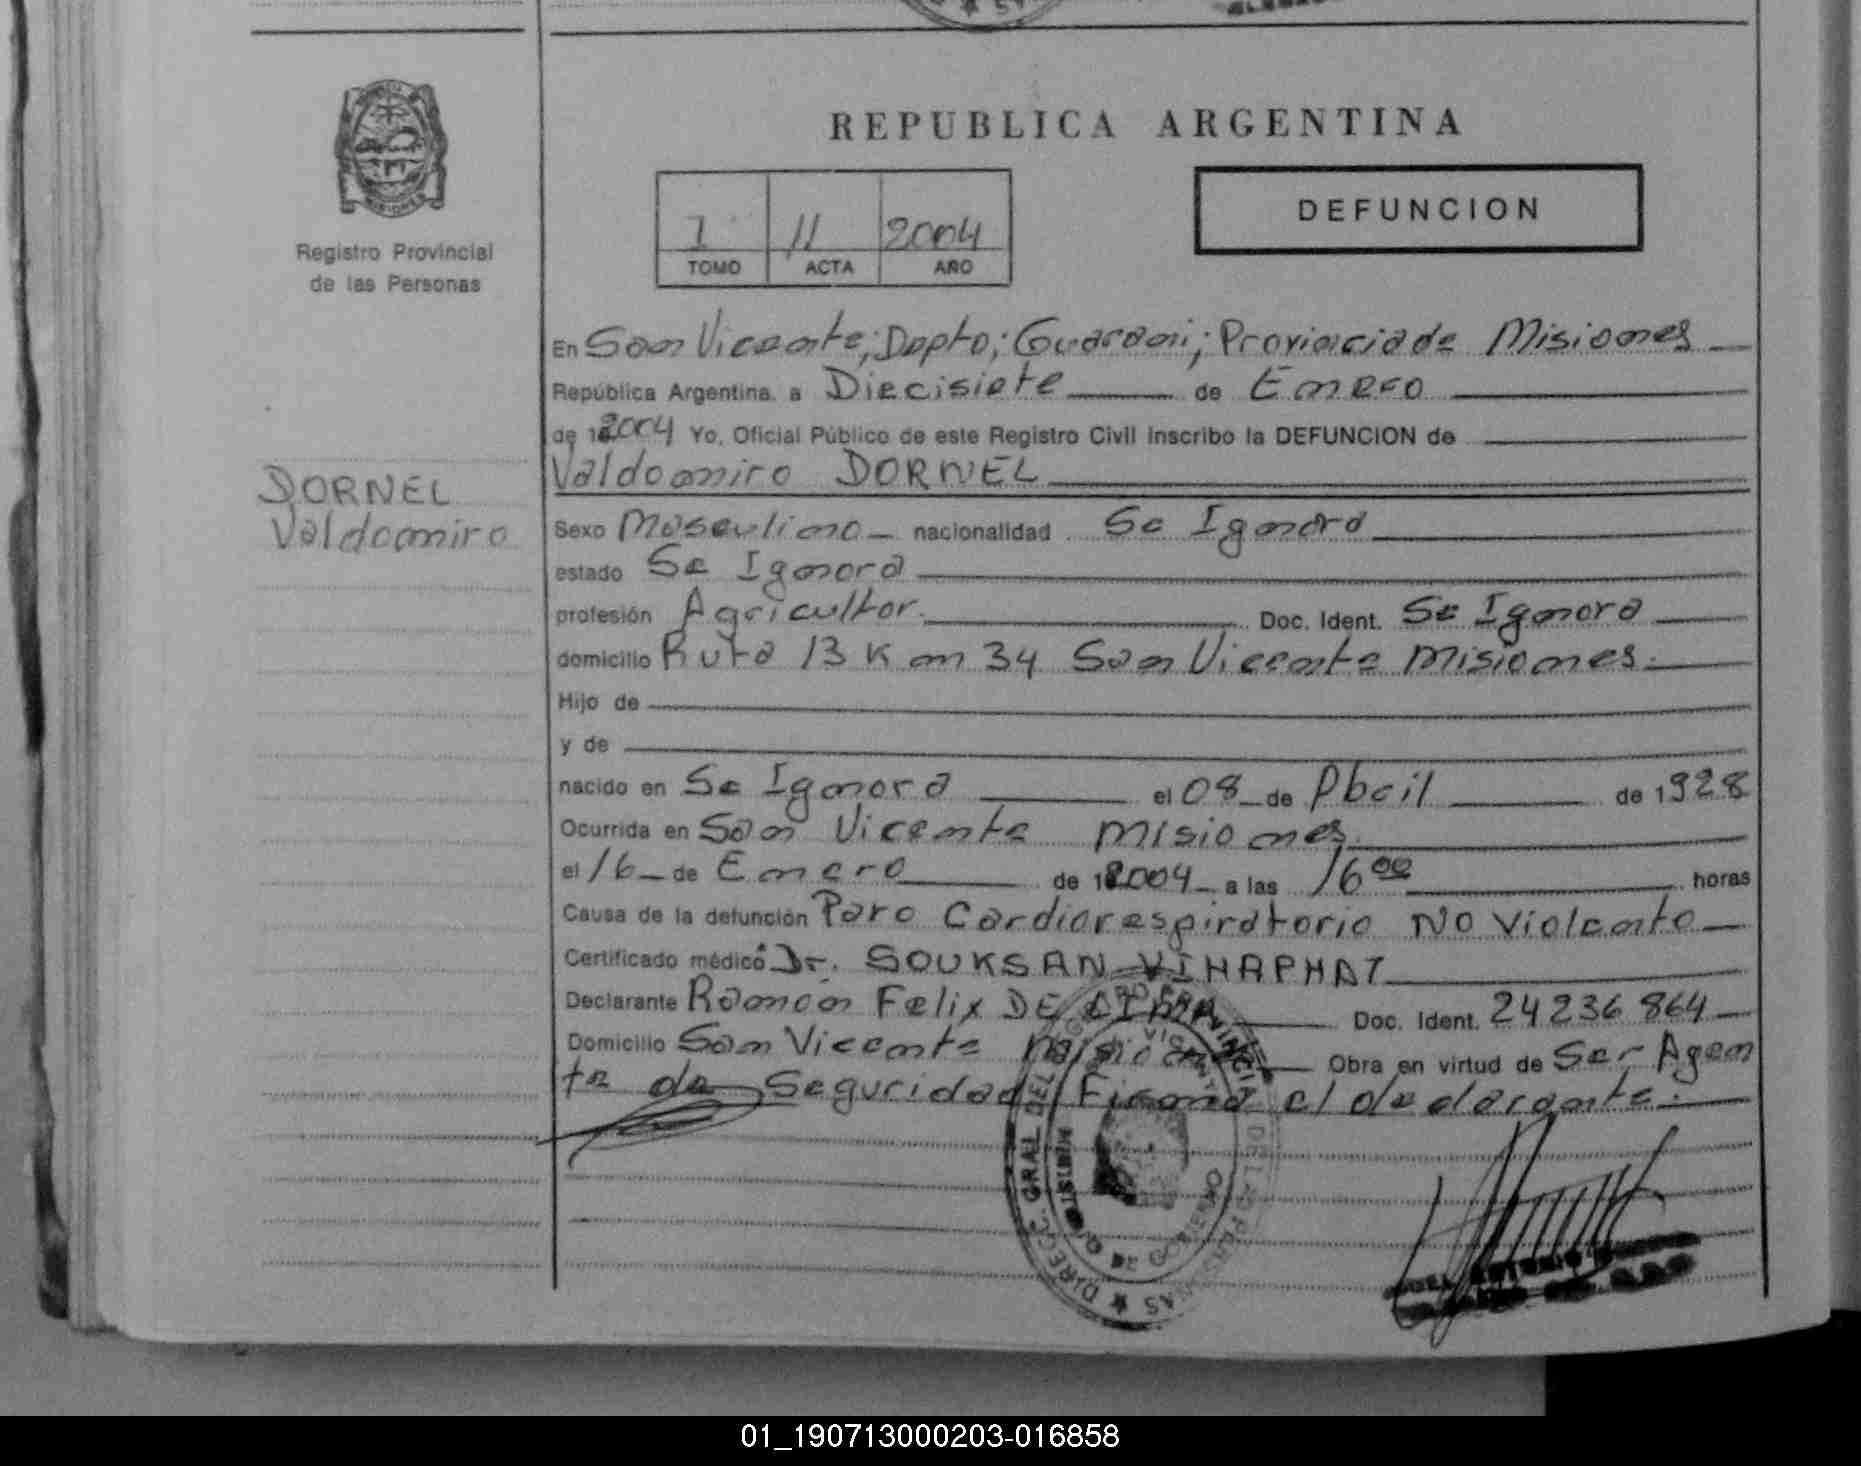 REPUBLICA ARGENTINA
MISIONES
Registro Provincial
de las Personas
1 11 2004
TOMO ACTA AÑO
DEFUNCION
DORNEL
Valdomiro
En San Vicente; Depto; Guarani; Provincia de Misiones
República Argentina, a Diecisiete de Enero
de 2004 Yo, Oficial Público de este Registro Civil inscribo la DEFUNCION de
Valdomiro DORNEL
Sexo Masculino nacionalidad Se Ignora
estado Se Ignora
profesión Agricultor. Doc. Ident. Se Ignora
domicilio Ruta 13 Km 34 San Vicente Misiones.
Hijo de
y de
nacido en Se Ignora el 08 de Abril de 1928
Ocurrida en San Vicente Misiones.
el 16 de Enero de 2004 a las 16 00 horas
Causa de la defunción Paro Cardiorespiratorio NO Violento
Certificado médico Dr. SOUKSAN VIHAPHAT
Declarante Ramon Felix DE LIMA Doc. Ident. 24236864
Domicilio San Vicente Misiones Obra en virtud de Ser Agen
te de Seguridad Firma el declarante.
01_190713000203-016858